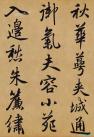 秋華萼夾城通
御氣夫容小苑
入邊愁朱簾繡